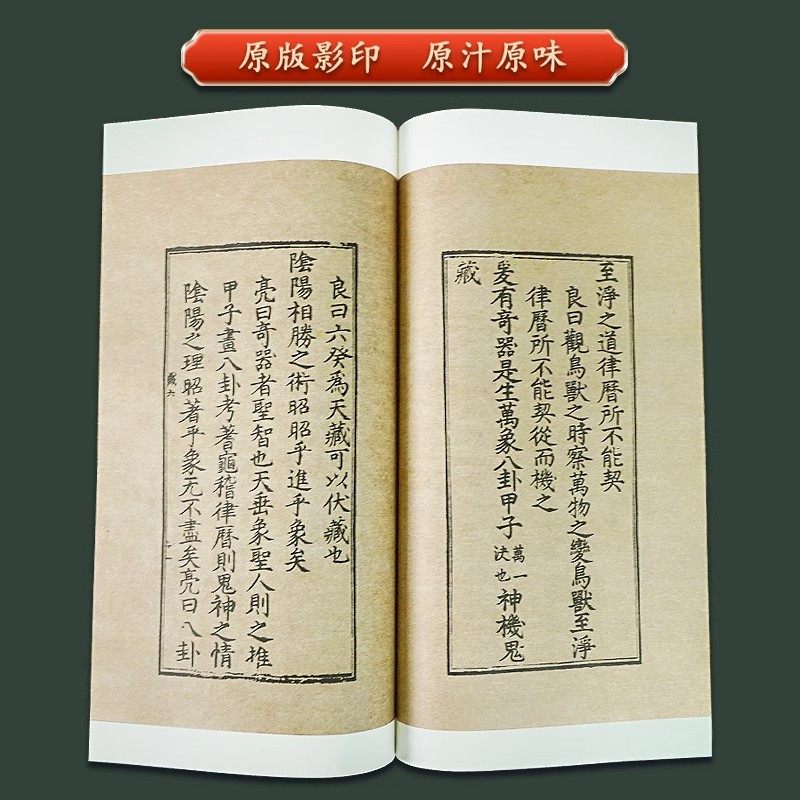 原版影印 原汁原味
至淨之道律曆所不能契
良曰觀鳥獸之時察萬物之變鳥獸至淨
律曆所不能契從而機之
爰有奇器是生萬象八卦甲子萬一決也神機鬼
藏
良曰六癸為天藏可以伏藏也
陰陽相勝之術昭昭乎進乎象矣
亮曰奇器者聖智也天垂象聖人則之推
甲子畫八卦考蓍龜稽律曆則鬼神之情
陰陽之理昭著乎象无不盡矣亮曰八卦